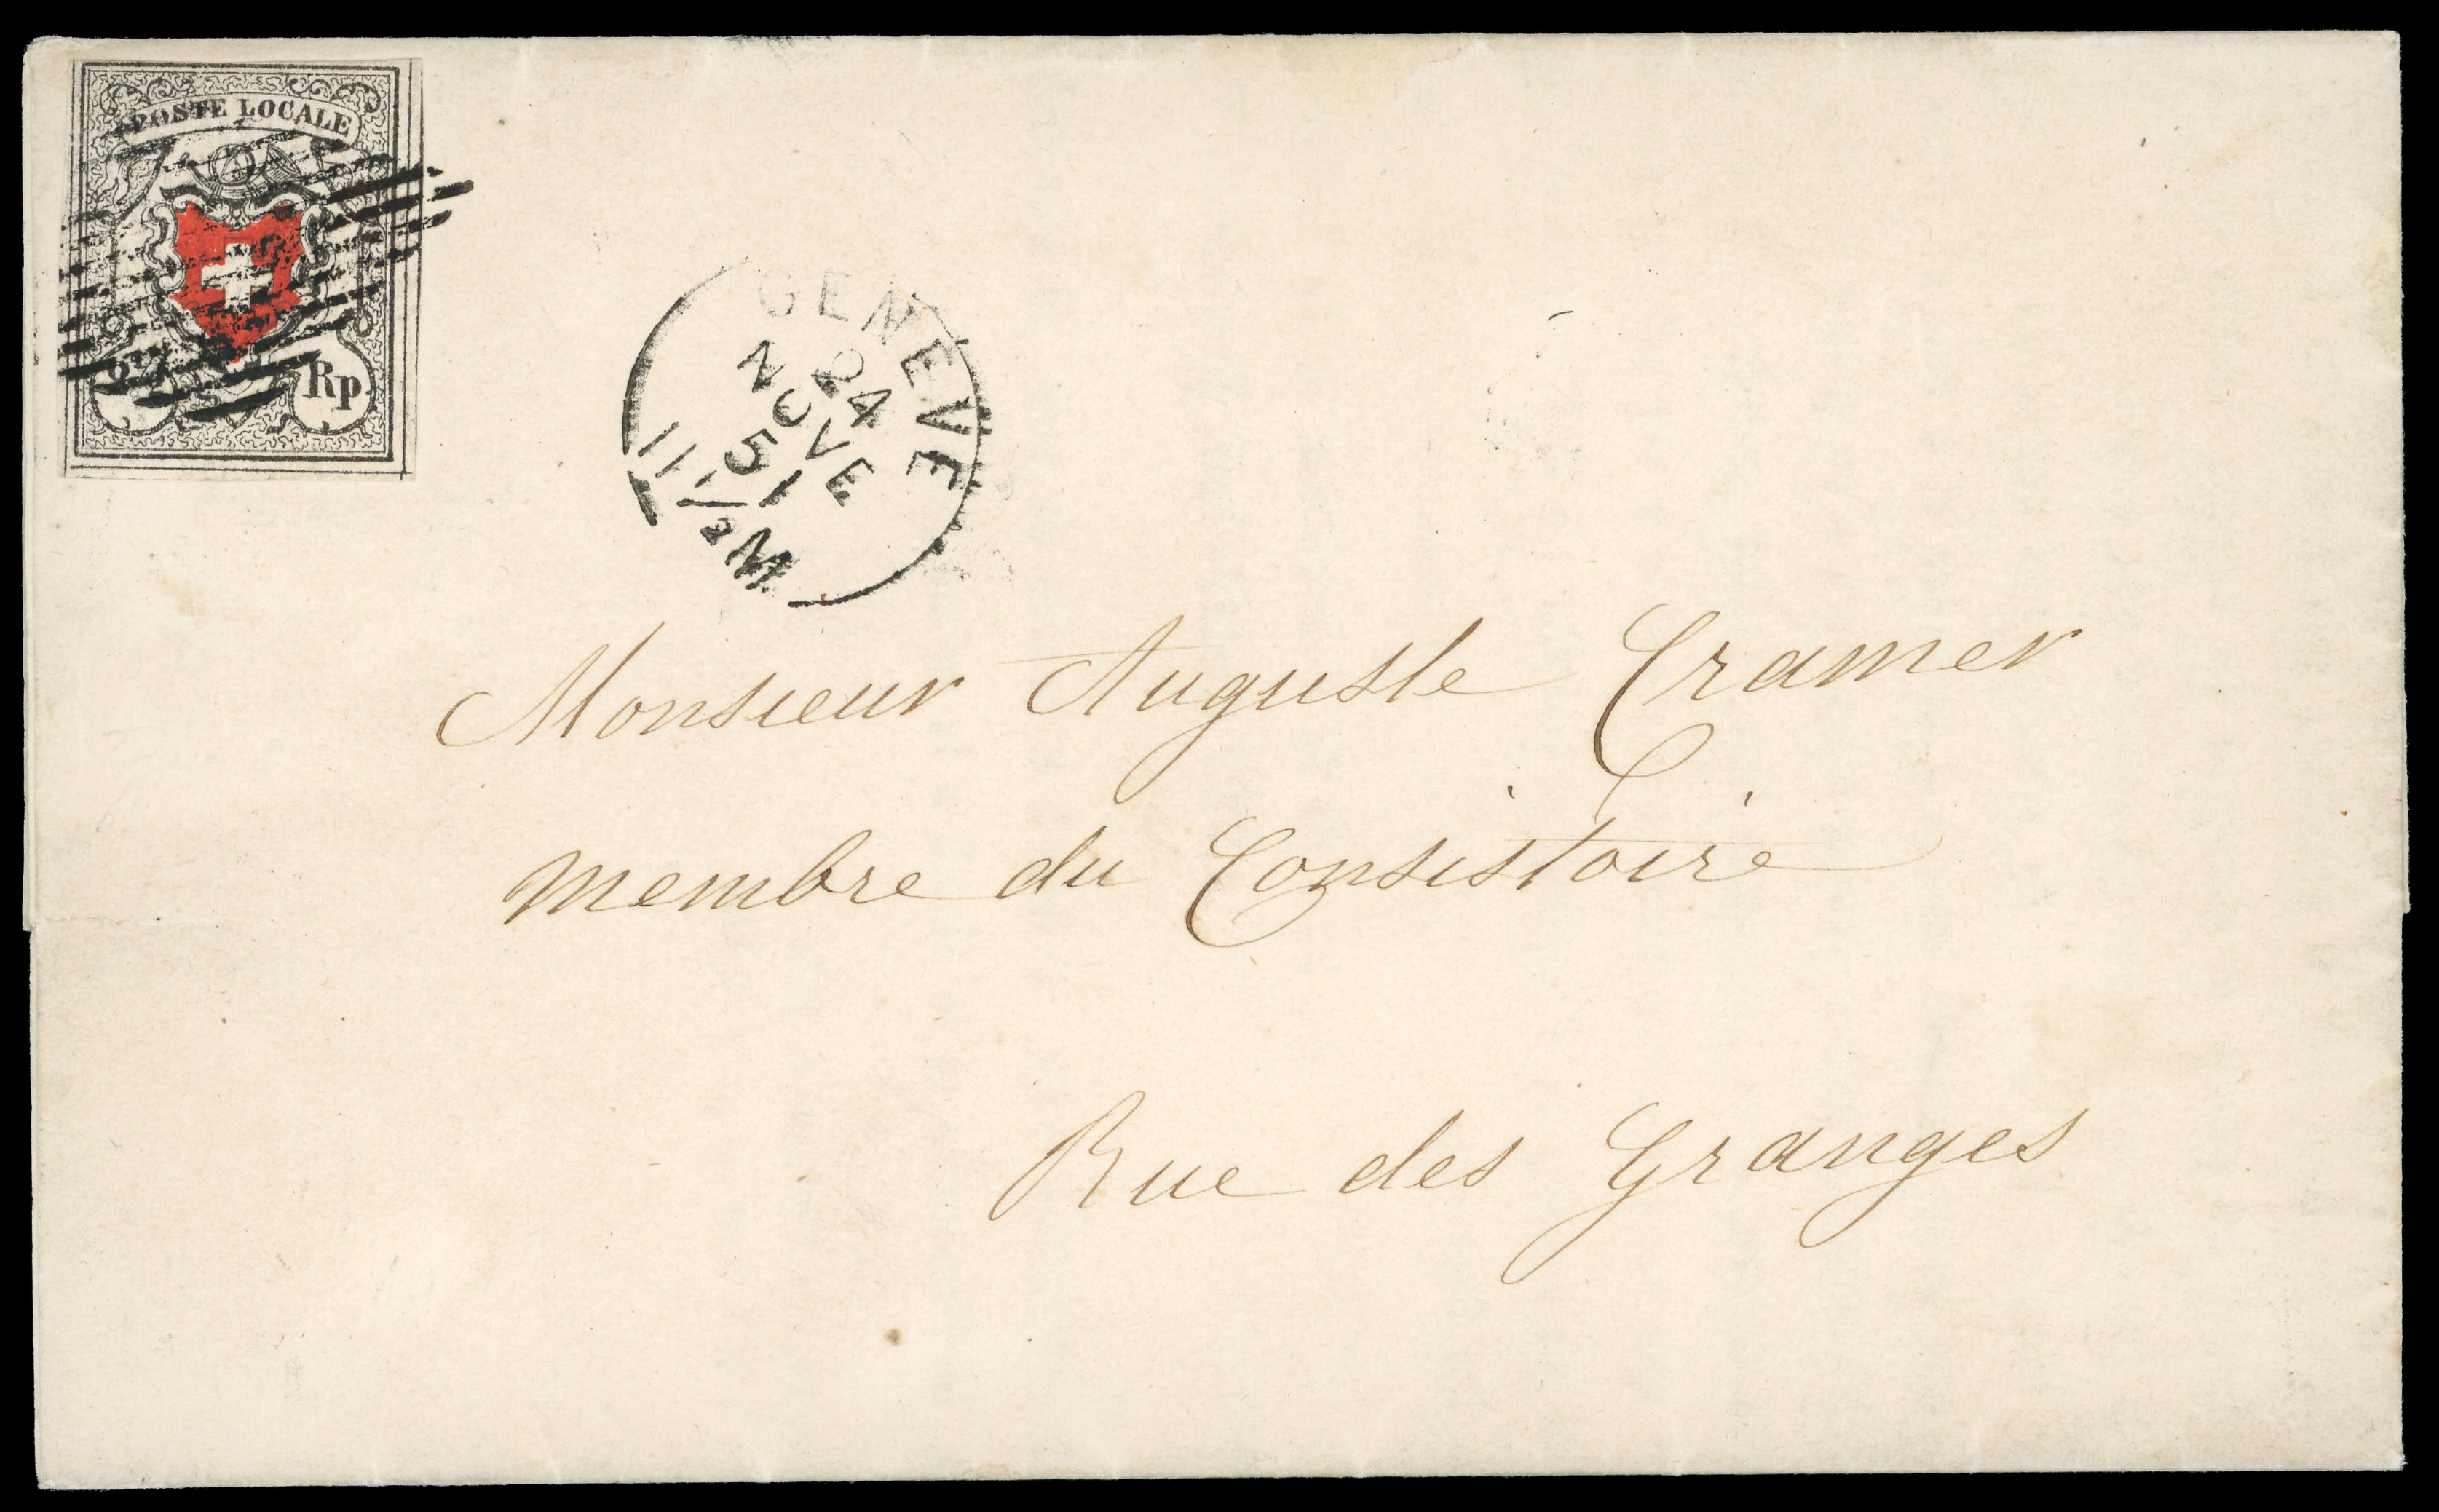 POSTE LOCALE
Rp.
GENEVE
24
NOVE
51
11½M
Monsieur Auguste Cramer
membre du Consistoire
Rue des Granges